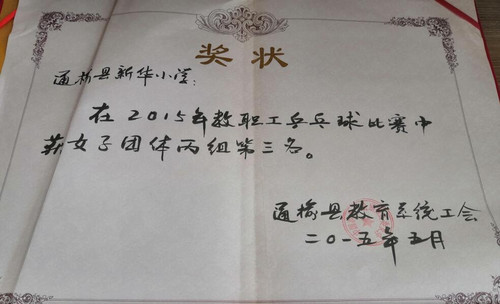 奖状
通榆县新华小学:
在2015年教职工乒乓球比赛中
获女子团体丙组第三名。
通榆县教育系统工会
二〇一五年五月